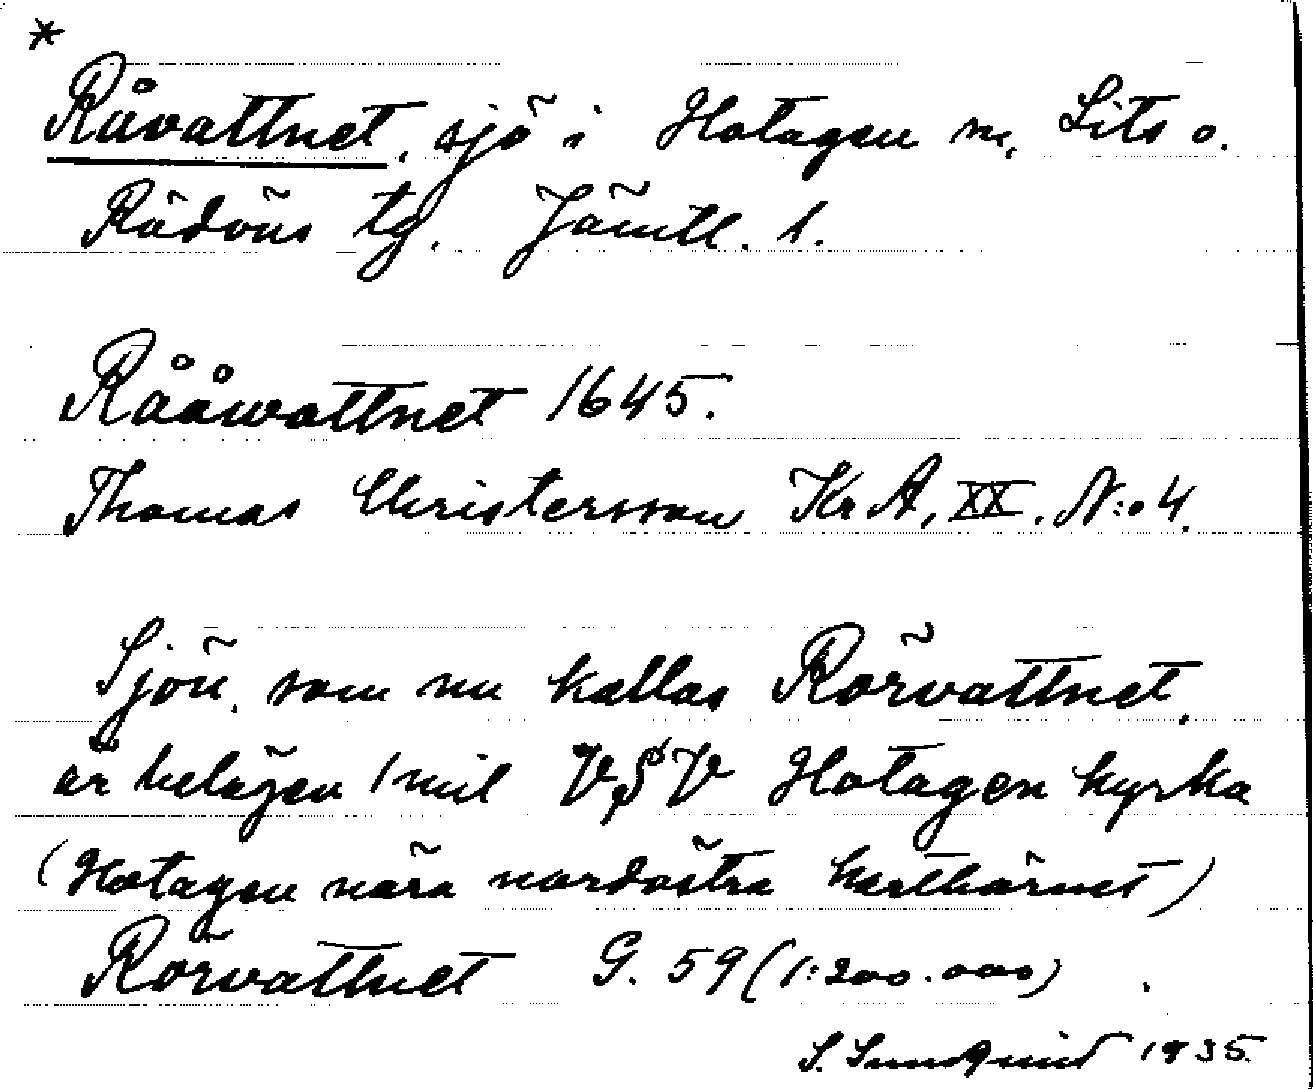 *
Råvattnet, sjö i Hotagen sn, Lits o.
Rödöns tg. Jämtl. l.
Rååwattnet 1645.
Thomas Christersson KrA, XX. N:o 4.
Sjön, som nu kallas Rörvattnet,
är belägen 1 mil VSV Hotagen kyrka
(Hotagen nära nordöstra karthörnet)
Rörvattnet G. 59 (1:200.000)
S. Sundquist 1935.